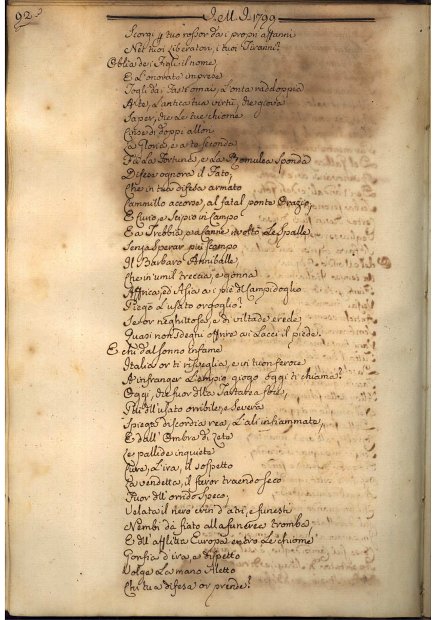 92.
J. M. J. 1799
Scorgi p tuo rossor da i propri affanni
Ne i tuoi Liberatori, i tuoi Tiranni?
Oblia de i Figli il nome,
E L'onorate imprese
Togli da i Fasti omai, L'onta raddoppia
Arte, L'antica tua virtù, che giova
Saper, che Le tue chiome
Cinse di doppi allori
La Gloria, e a te seconda
Fù La Fortuna, e La Romulea sponda
Difese ognora il Fato,
Che in tua difesa armato
Cammillo accorse, al fatal ponte Orazio,
E Curio, e Scipio in Campo
E a Trebbia, e a Canne in voltò Le Spalle,
Senza sperar più scampo
Il Barbaro Anniballe,
Che in umil treccia, e gonna
Affrica, ed Asia a i piè di Campidoglio
Piegò L'usato orgoglio?
Se or neghittosa, e di viltade erede
Quasi non sdegni offrire a i Lacci il piede.
E chi dal sonno infame
Italia or ti risveglia, e in tuon feroce
A infranger L'empio giogo oggi ti chiama?
Oggi, che fuor dalla Tartara foce,
Più dell'usato orribile, e severa
Spiega discordia rea, L'ali infiammate,
E dall' Ombre di Lete
Le pallide inquiete
Cure, L'ira, il sospetto
La vendetta, il furor traendo seco
Fuor dell'orrido Speco,
Velata il nero crin d'atri, e funesti
Nembi dà fiato alla funerea tromba,
E dell'afflitta Europa entro Le chiome
Gonfia d'ira, e dispetto
Volge La mano Aletto
Chi tua difesa or prende?